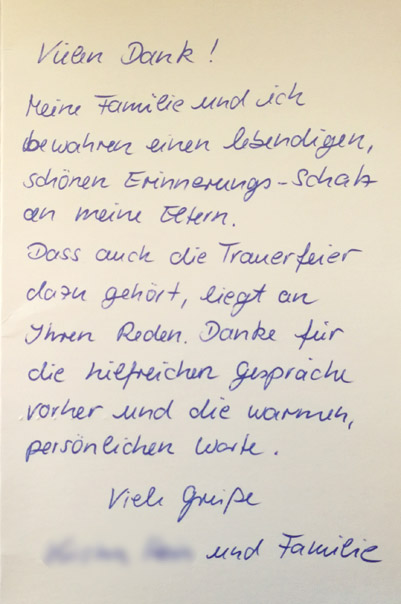 Vielen Dank!
Meine Familie und ich
bewahren einen lebendigen,
schönen Erinnerungs-Schatz
an meine Eltern.
Dass auch die Trauerfeier
dazu gehört, liegt an
Ihren Reden. Danke für
die hilfreichen Gespräche
vorher und die warmen,
persönlichen Worte.
Viele Grüße
und Familie